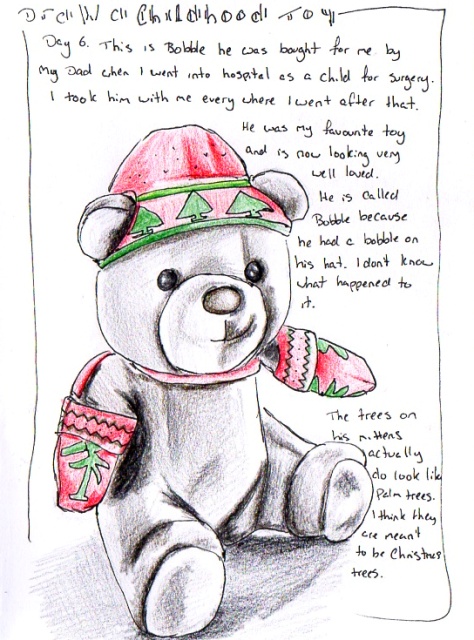 Draw a Childhood Toy
Day 6. This is Bobble he was bought for me by
my Dad when I went into hospital as a child for surgery.
I took him with me every where I went after that.
He was my favourite toy
and is now looking very
well loved.
He is called
Bobble because
he had a bobble on
his hat. I don't know
what happened to
it.
The trees on
his mittens
actually
do look like
Palm trees.
I think they
are meant
to be Christmas
trees.